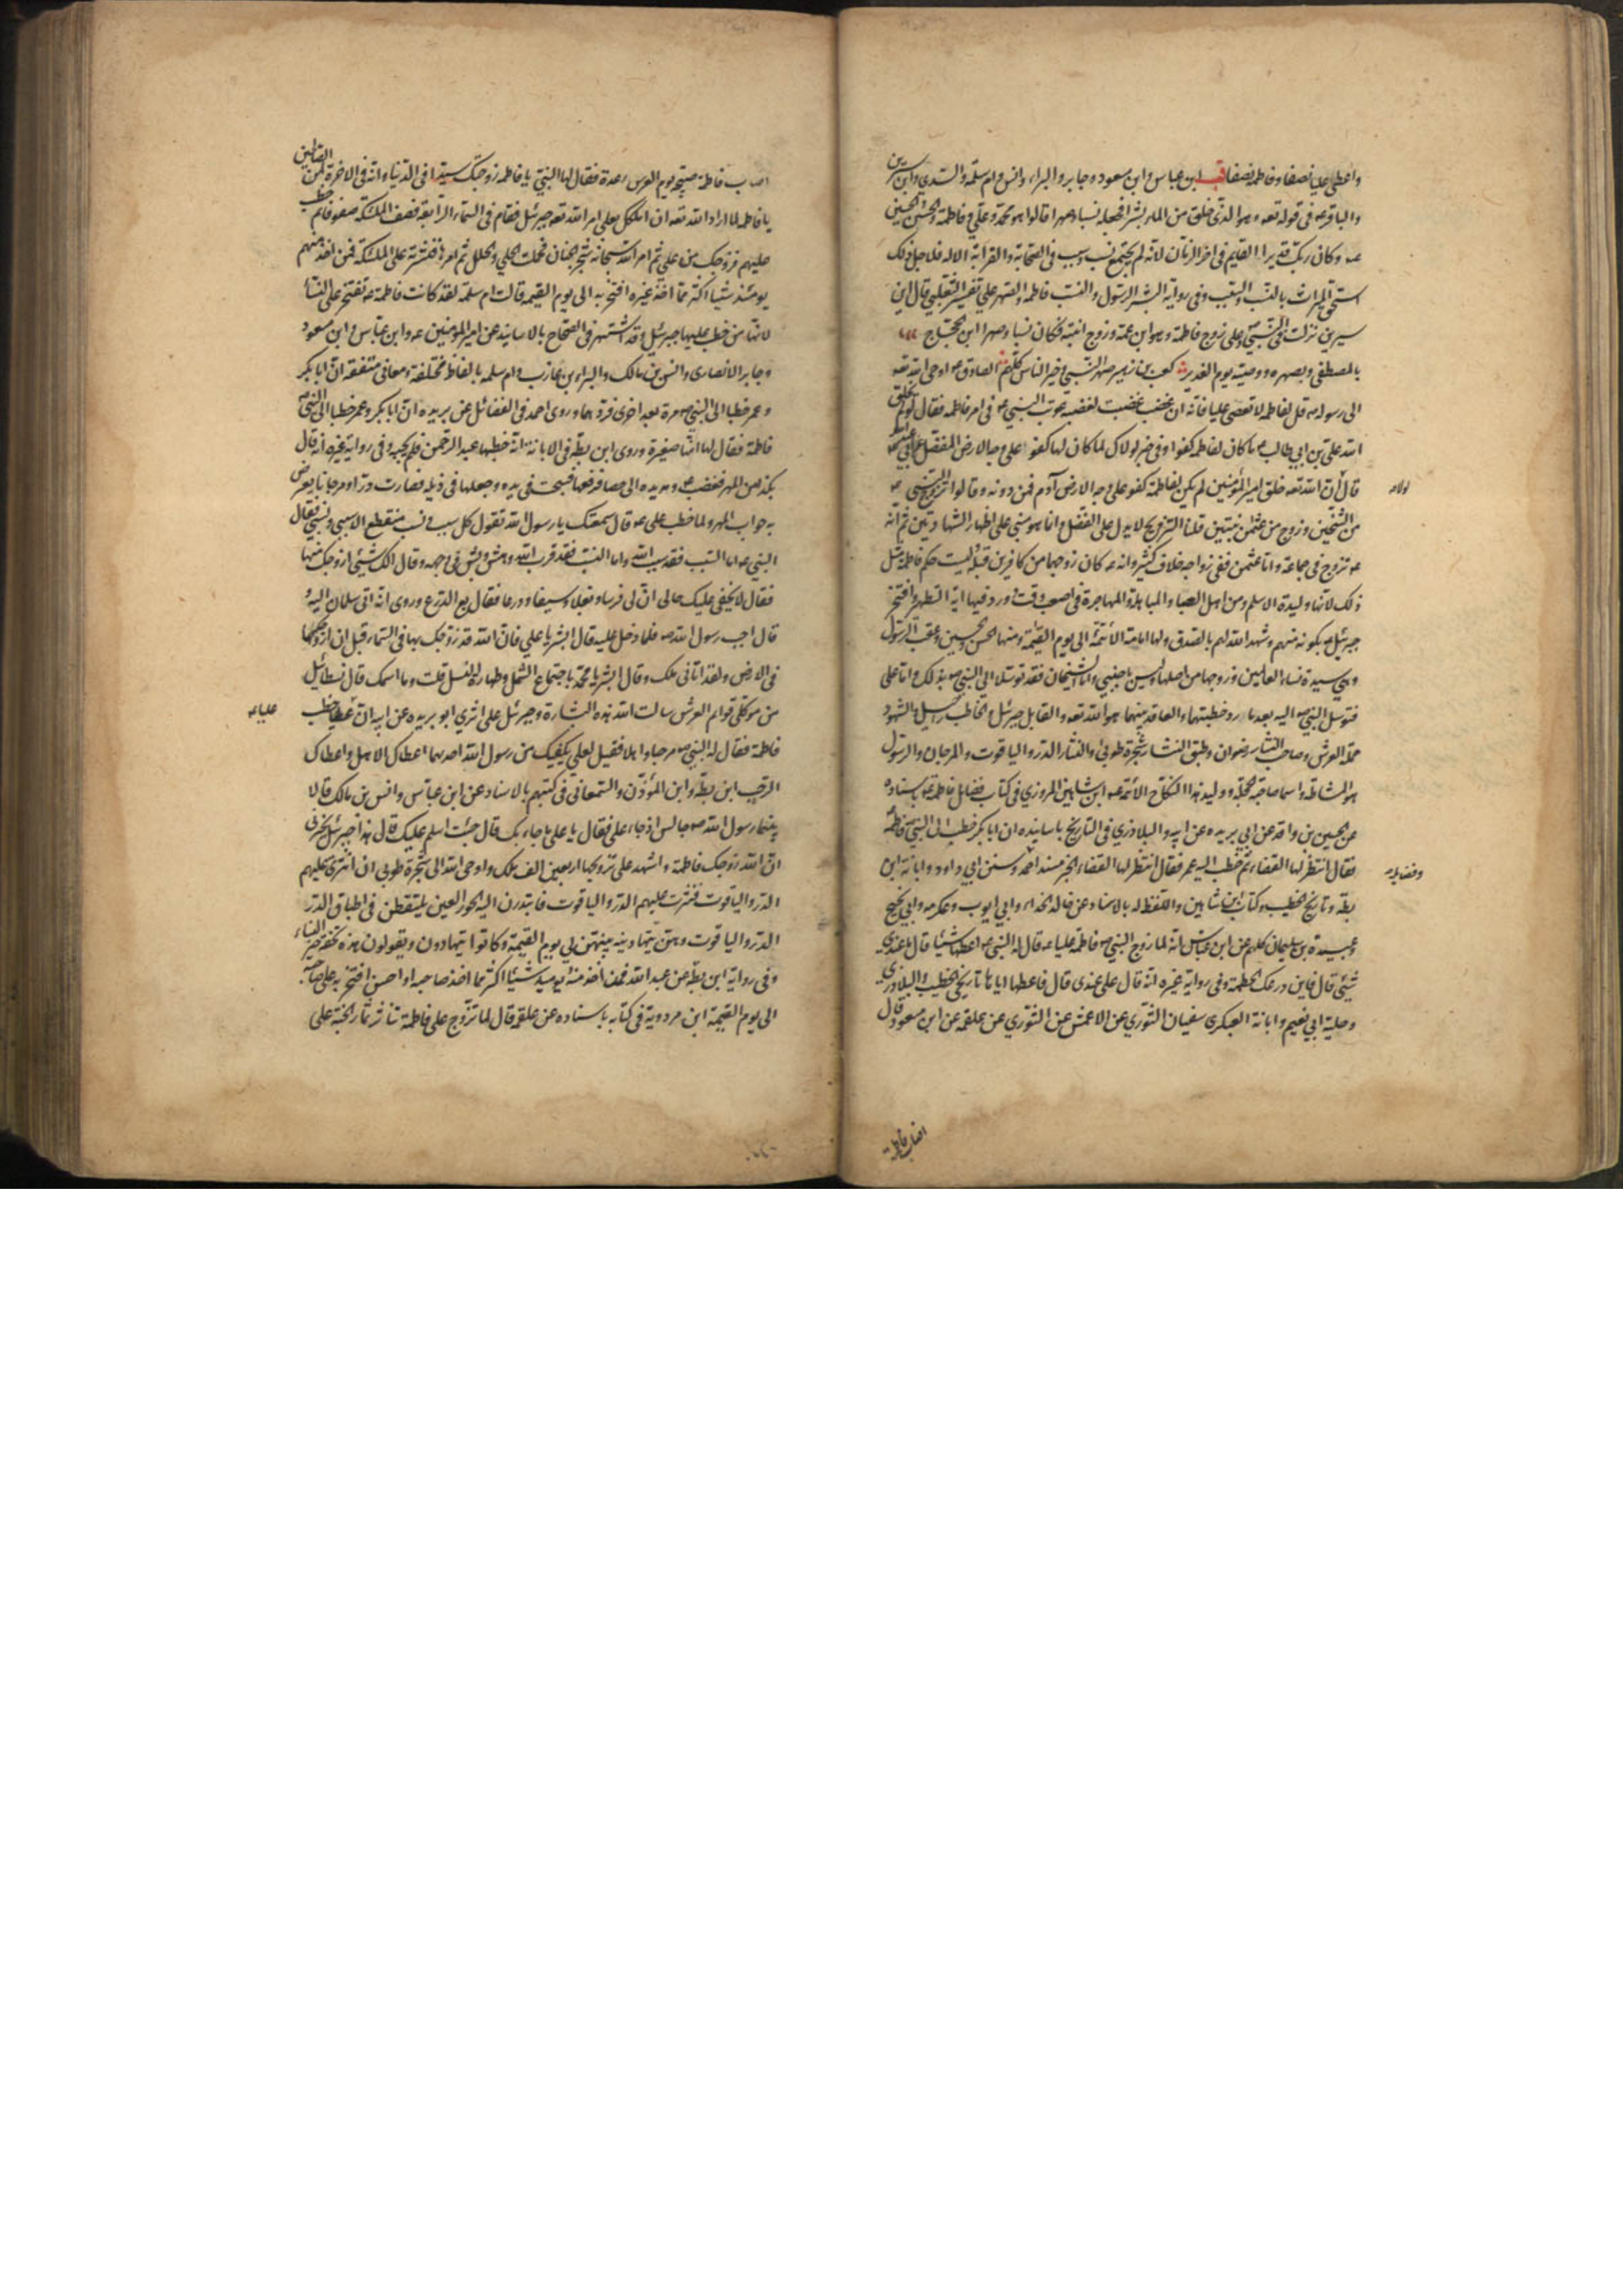 واعطى عليا نصفا وفاطمة نصفا قب ابن عباس وابن مسعود وجابر والبراء وانس وام سلمة والسدي وابن سيرين
والباقر ع في قوله تعه وهو الذي خلق من الماء بشرا فجعله نسبا وصهرا قالوا هو محمد وعلي وفاطمة والحسن والحسين
ع وكان ربك قديرا القايم في اخر الزمان لانه لم يجتمع نسب وسبب في الصحابة والقرابة الا له فلاجل ذلك
استحق الميراث بالنسب والسبب وفي رواية البشر الرسول والنسب فاطمة والصهر علي تفسير الثعلبي قال ابن
سيرين نزلت في النبي وعلي زوج فاطمة وهو ابن عمه وزوج ابنته فكان نسبا وصهرا ابن الحجاج
بالمصطفى وبصهره ووصيه يوم الغدير كعب بن زهير صهر النبي وخير الناس كلهم الصادق ع اوحى الله تعه
الى رسوله ص قل لفاطمه لا تعصي عليا فانه ان غضب غضبت لغضبه عوتب النبي ص في امر فاطمه فقال لو لم يخلق
الله علي بن ابي طالب ما كان لفاطمه كفوا وفي خبر لولاك لما كان لها كفو على وجه الارض المفضل عن ابي عبد الله
قال ان الله تعه خلق امير المؤمنين لم يكن لفاطمة كفو على وجه الارض آدم فمن دونه وقالوا تزوج النبي ص
من الشيخين وزوج من عثمان بنتين قلنا التزويج لا يدل على الفضل وانما هو مبني على اظهار الشهادتين ثم انه
ص تزوج في جماعة واما عثمن ففي زواجه خلاف كثير وانه ع كان زوجهما من كافرين قبله وليست حكم فاطمة مثل
ذلك لانها وليدة الاسلم ومن اهل العبا والمباهلة والمهاجرة في اصعب وقت وورد فيها اية التطهير وافتخر
جبرئيل بكونه منهم وشهد الله لهم بالصدق ولها امامة الائمة الى يوم القيمة ومنها الحسن والحسين وعقب الرسول
وهي سيدة نساء العالمين وزوجها من اصلها وليس باجنبي واما الشيخان فقد توسلا الى النبي ص بذلك واما علي
فتوسل النبي ص اليه بعد ما رد خطبتهما والعاقد بينهما هو الله تعه والقابل جبرئيل والخاطب راحيل والشهود
حملة العرش وصاحب النثار رضوان وطبق النثار شجرة طوبى والنثار الدر والياقوت والمرجان والرسول
هو المشاطة واسما صاحبة الحجلة ووليد هذا النكاح الائمة ع ابن شاهين المروزي في كتاب فضايل فاطمة ع باسناده
عن الحسين بن واقد عن ابي بريده عن ابيه والبلاذري في التاريخ باسانيده ان ابا بكر خطب الى النبي ص فاطمة
فقال انتظر لها القضاء ثم خطب اليه عمر فقال انتظر لها القضاء الخبر مسند احمد وسنن ابي داود وابانة ابن
بطة وتاريخ الخطيب وكتاب ابن شاهين واللفظ له بالاسناد عن خالد الحذاء وابي ايوب وعكرمه وابي نجيح
وعبيدة بن سليمان كلهم عن ابن عباس انه لما زوج النبي ص فاطمة عليا ع قال له النبي ص اعطها شيئا قال ما عندي
شيئ قال فاين درعك الحطمة وفي رواية غيره انه قال علي عندي قال فاعطها اياها تاريخي الخطيب والبلاذري
وحلية ابي نعيم وابانة العكبري سفيان الثوري عن الاعمش عن الثوري عن علقمه عن ابن مسعود قال
اولاد
وفضايله
اصاب فاطمة
اصاب فاطمة صبيحة يوم العرس رعدة فقال لها النبي يا فاطمه زوجتك سيدا في الدنيا وانه في الاخرة لمن الصالحين
يا فاطمه لما اراد الله تعه ان املكك بعلي امر الله تعه جبرئيل فقام في السماء الرابعة فصف الملئكة صفوفا ثم خطب
عليهم فزوجك من علي ثم امر الله سبحانه شجر الجنان فحملت الحلي والحلل ثم امرها فنثرته على الملئكة فمن اخذ منهم
يومئذ شيئا اكثر مما اخذ غيره افتخر به الى يوم القيمه قالت ام سلمة لقد كانت فاطمة ع تفتخر على النسا
لانها من خطب عليها جبرئيل وقد اشتهر في الصحاح بالاسانيد عن امير المؤمنين ع وابن عباس وابن مسعود
وجابر الانصارى وانس بن مالك والبراء بن عازب وام سلمه بالفاظ مختلفة ومعاني متفقة ان ابا بكر
وعمر خطبا الى النبي ص مرة بعد اخرى فردهما وروى احمد في الفضائل عن بريده ان ابا بكر وعمر خطبا الى النبي ص
فاطمة فقال لها انها صغيرة وروى ابن بطه في الابانة انه خطبها عبد الرحمن فلم يجبه وفي رواية غيره انه قال
بكذا من المهر فغضب ص ومد يده الى حصا فرفعها فسبحت في يده وجعلها في ذيله فصارت درا ومرجانا يعرض
به جواب المهر ولما خطب علي ع قال سمعتك يا رسول الله تقول كل سبب ونسب منقطع الا سببي ونسبي فقال
النبي ص اما السبب فقد سبب الله واما النسب فقد قرب الله وهش وبش في وجهه وقال الك شيئ ازوجك منها
فقال لا يخفى عليك حالي ان لي فرسا وبغلا وسيفا ودرعا فقال بع الدرع وروى انه اتى سلمان اليه و
قال اجب رسول الله ص فلما دخل عليه قال ابشر يا علي فان الله قد زوجك بها في السماء قبل ان ازوجكها
في الارض ولقد اتاني ملك وقال ابشر يا محمد باجتماع الشمل وطهارة النسل قلت وما اسمك قال نسطائيل
من موكلي قوائم العرش سالت الله هذه البشارة وجبرئل على اثري ابو بريده عن ابيه ان عليا خطب
فاطمة فقال له النبي ص مرحبا واهلا فقيل لعلي يكفيك من رسول الله احدهما اعطاك الاهل واعطاك
الرحب ابن بطة وابن المؤذن والسمعاني في كتبهم بالاسناد عن ابن عباس وانس بن مالك قالا
بينما رسول الله ص جالس اذ جاء علي فقال يا علي ما جاء بك قال جئت اسلم عليك قال هذا جبرئل يخبرني
ان الله زوجك فاطمة واشهد على تزويجها اربعين الف ملك واوحى الله الى شجرة طوبى ان انثري عليهم
الدر والياقوت فنثرت عليهم الدر والياقوت فابتدرن اليه الحور العين يلتقطن في اطباق الدر
الدر والياقوت وهن يتهادينه بينهن الى يوم القيمة وكانوا يتهادون ويقولون هذه تحفة خير النساء
وفي رواية ابن بطة عن عبد الله فمن اخذ منه يوميذ شيئا اكثر مما اخذ صاحبه او احسن افتخر به على صاحبه
الى يوم القيمة ابن مردوية في كتابه باسناده عن علقمه قال لما تزوج علي فاطمة تناثر ثمار الجنة على
عليا ع